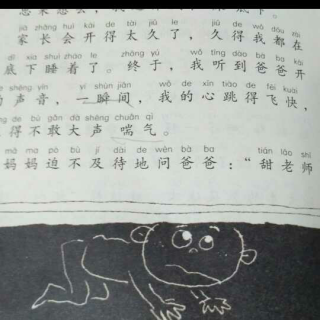 jiā zhǎng huì kāi de tài jiǔ le jiǔ de wǒ dōu
家长会开得太久了，久得我都在
dǐ xia shuì zháo le zhōng yú wǒ tīng dào bà ba kāi
底下睡着了。终于，我听到爸爸开
de shēng yīn yí shùn jiān wǒ de xīn tiào de fēi kuài
的声音，一瞬间，我的心跳得飞快，
de bù gǎn dà shēng chuǎn qì
得不敢大声喘气。
mā ma pò bù jí dài de wèn bà ba tián lǎo shī
妈妈迫不及待地问爸爸：“甜老师